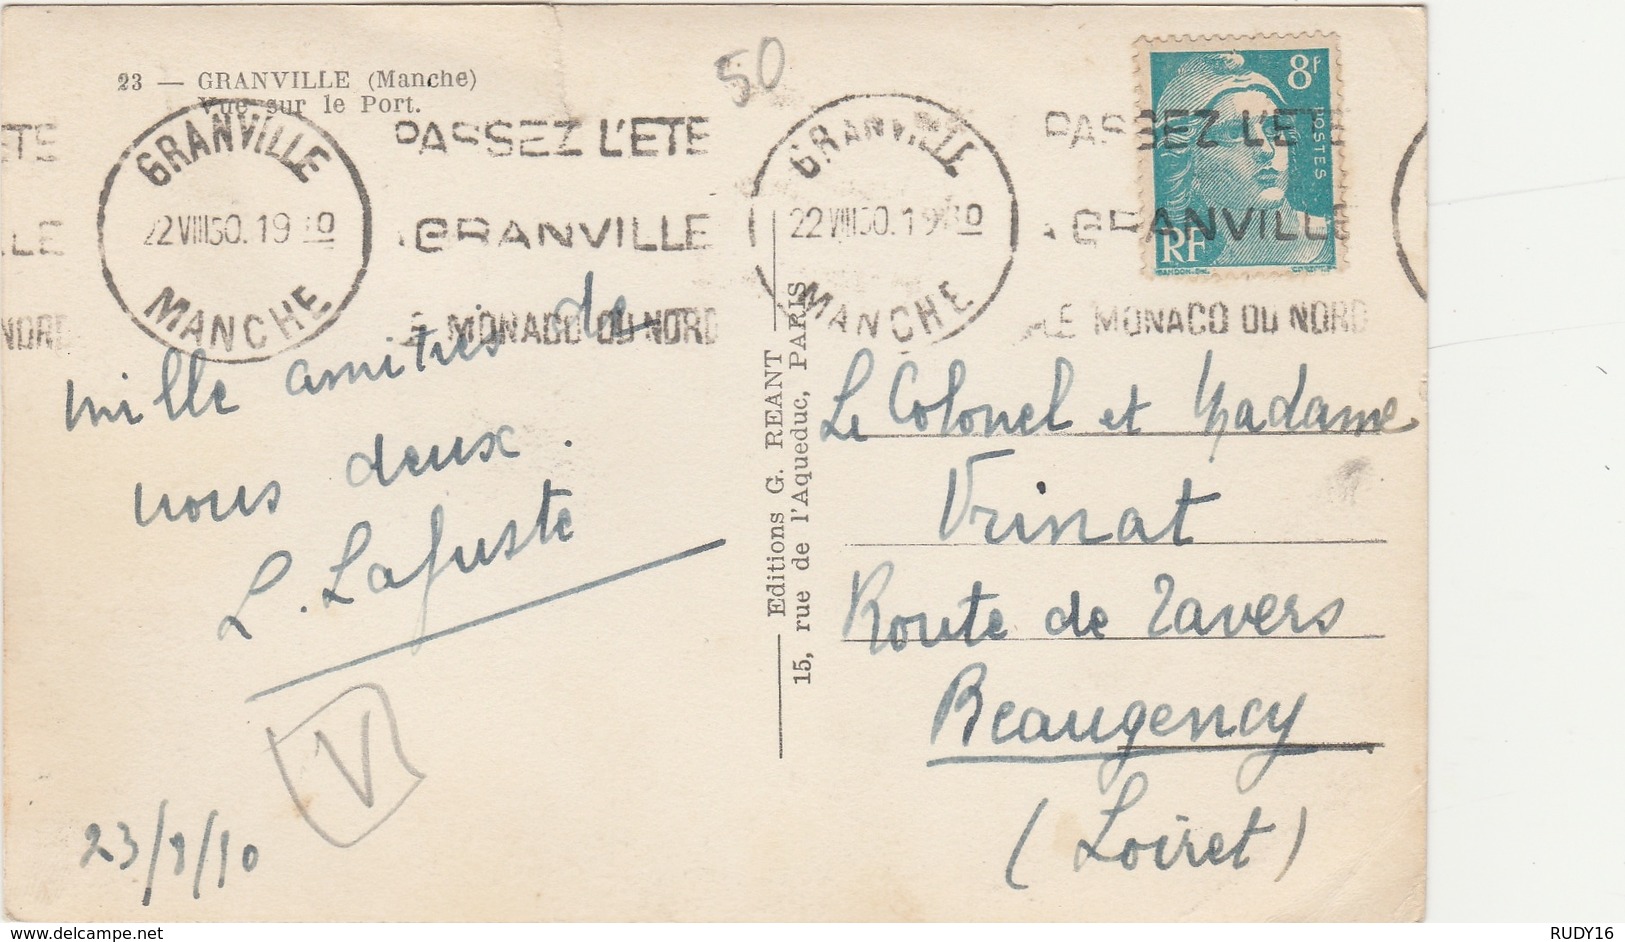 23 — GRANVILLE (Manche)
Vue sur le Port.
50
GRANVILLE
22 VIII 50. 19 30
MANCHE
PASSEZ L'ETE
GRANVILLE
LE MONACO DU NORD
GRANVILLE
22 VIII 50. 19 30
MANCHE
PASSEZ L'ETE
GRANVILLE
LE MONACO DU NORD
ETE
LLE
NORD
8f
POSTES
RF
GANDON
mille amitiés de
nous deux.
L. Lafuste
V
23/8/50
Editions G. REANT
15, rue de l'Aqueduc, PARIS
Le Colonel et Madame
Vrinat
Route de Tavers
Beaugency
(Loiret)
www.delcampe.net
RUDY16